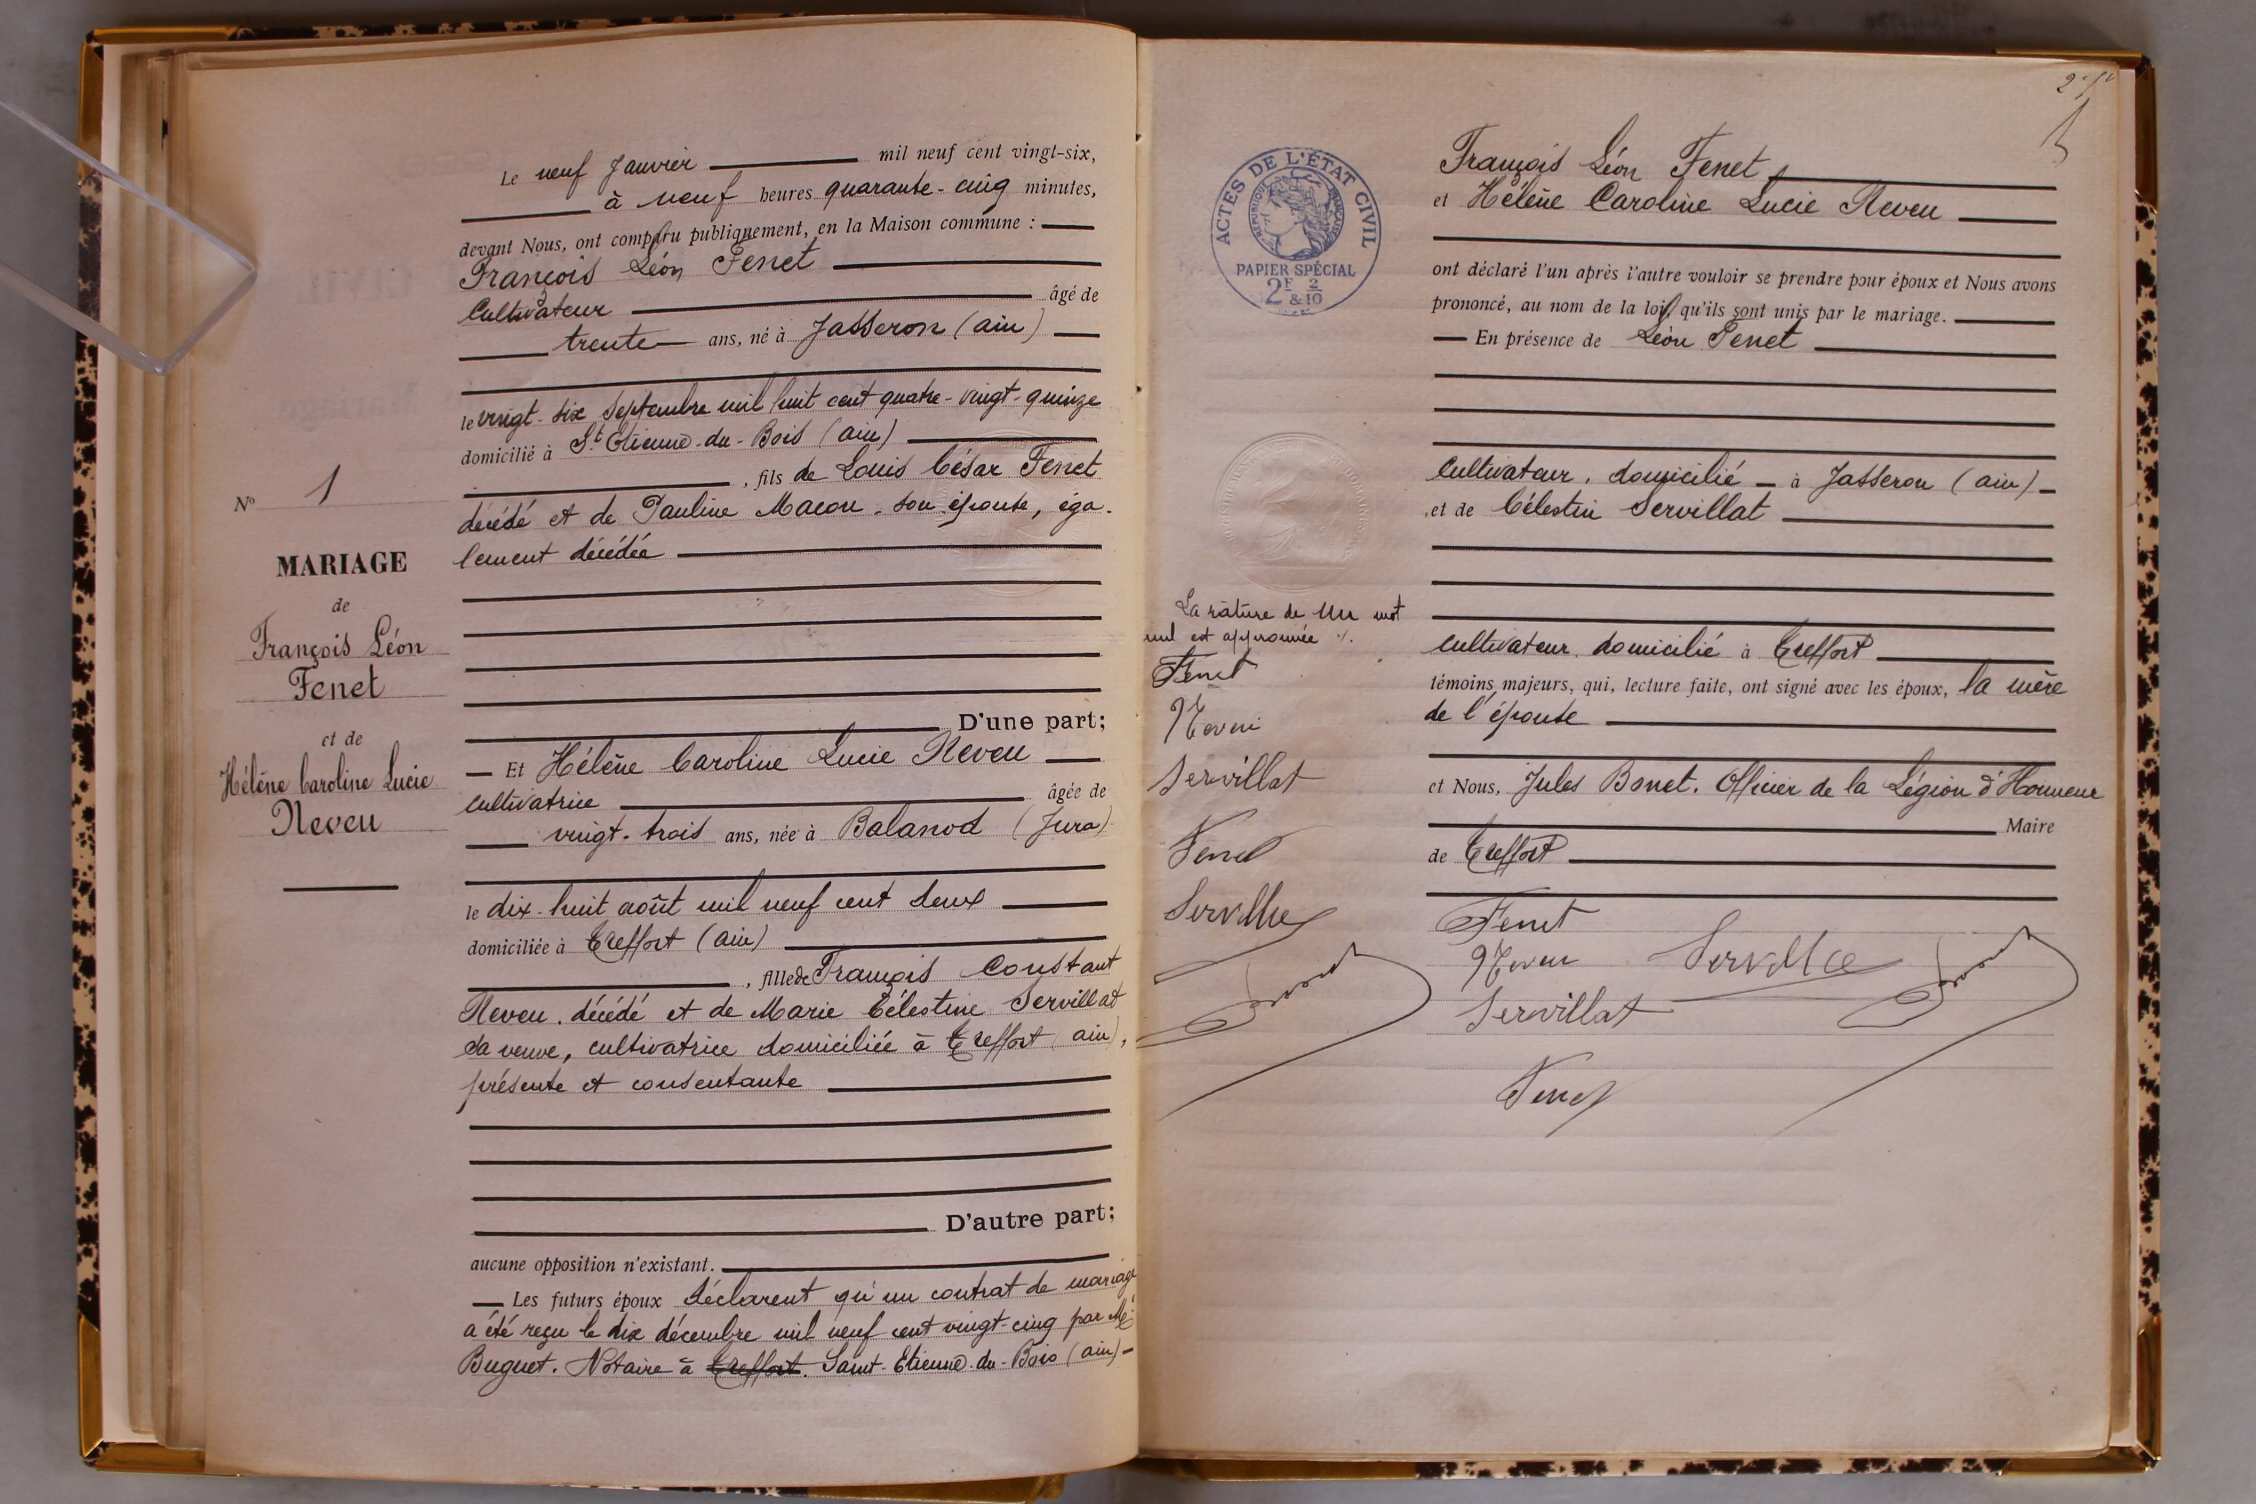 Le neuf Janvier mil neuf cent vingt-six,
à neuf heures quarante-cinq minutes,
devant Nous, ont comparu publiquement, en la Maison commune :
François Léon Fenet
Cultivateur âgé de
trente ans, né à Jasseron (ain)
le vingt-six septembre mil huit cent quatre-vingt-quinze
domicilié à St Etienne-du-Bois (ain)
, fils de Louis César Fenet
décédé et de Pauline Macon. son épouse, éga-
lement décédée
D'une part;
Et Hélène Caroline Lucie Neveu
cultivatrice âgée de
vingt-trois ans, née à Balanod (Jura)
le dix-huit août mil neuf cent deux
domiciliée à Treffort (ain)
, fille de François Constant
Neveu. décédé et de Marie Célestine Servillat
sa veuve, cultivatrice domiciliée à Treffort (ain),
présente et consentante
D'autre part;
aucune opposition n'existant.
Les futurs époux déclarent qu'un contrat de mariage
a été reçu le dix décembre mil neuf cent vingt-cinq par Me
Buguet. Notaire à Treffort. Saint-Etienne-du-Bois (ain)
No 1
MARIAGE
de
François Léon
Fenet
et de
Hélène Caroline Lucie
Neveu
ACTES DE L'ÉTAT CIVIL
RÉPUBLIQUE FRANÇAISE
PAPIER SPÉCIAL
2F & 2/10
François Léon Fenet
et Hélène Caroline Lucie Neveu
ont déclaré l'un après l'autre vouloir se prendre pour époux et Nous avons
prononcé, au nom de la loi, qu'ils sont unis par le mariage.
En présence de Léon Fenet
Cultivateur. domicilié à Jasseron (ain)
et de Célestin Servillat
cultivateur. domicilié à Treffort
témoins majeurs, qui, lecture faite, ont signé avec les époux, la mère
de l'épouse
et Nous, Jules Bonet. Officier de la Légion d'Honneur
Maire
de Treffort
Fenet
Neveu
Servillat
Fenet
La rature de un mot
nul est approuvée
Fenet
Neveu
Servillat
Fenet